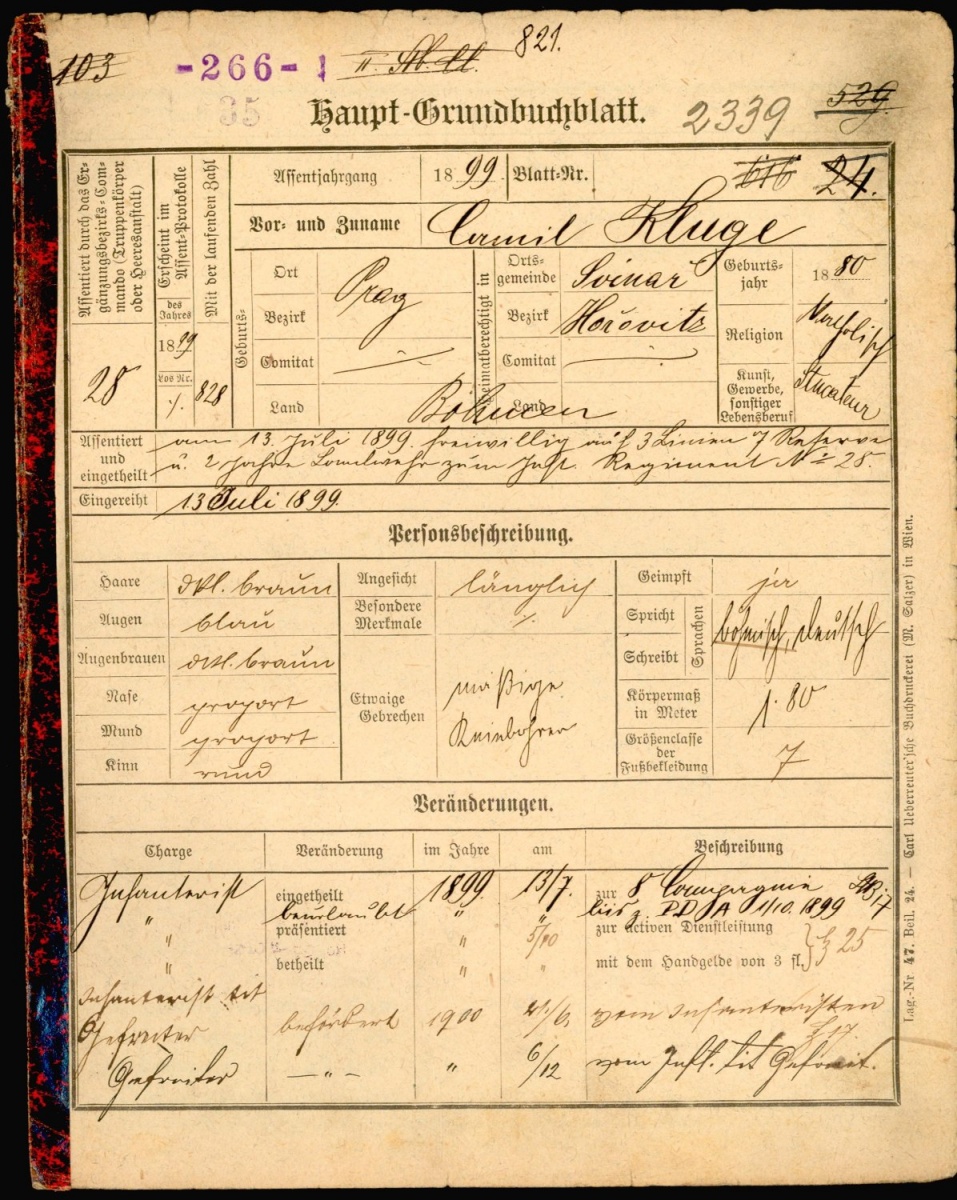 103 -266- 1 II. Ab. Cl. 821.
35
Haupt-Grundbuchblatt. 2339 529.
Assentiert durch das Er-
gänzungsbezirks-Com-
mando (Truppenkörper
oder Heeresanstalt)
28
Erscheint im
Assent-Protokolle
des
Jahres
1899
Los Nr.
·/.
Mit der laufenden Zahl
828
Assentjahrgang 1899 Blatt-Nr. 616 24.
Vor- und Zuname Camil Kluge
Geburts-
Ort Prag
Bezirk
Comitat
Land Böhmen
Heimatberechtigt in
Orts-
gemeinde Svinař
Bezirk Hořovitz
Comitat
Land
Geburts-
jahr 1880
Religion Katholisch
Kunst,
Gewerbe,
sonstiger
Lebensberuf Stucateur
Assentiert
und
eingetheilt
am 13. Juli 1899. freiwillig auf 3 Linien 7 Reserve
u. 2 Jahre Landwehr zum Inft. Regiment № 28.
Eingereiht 13 Juli 1899.
Personsbeschreibung.
Haare dkl. braun
Augen blau
Augenbrauen dkl. braun
Nase proport
Mund proport.
Kinn rund
Angesicht länglich
Besondere
Merkmale ·/.
Etwaige
Gebrechen mäßige
Kniebohrer
Geimpft ja
Spricht
Schreibt
Sprachen
böhmisch, deutsch
Körpermaß
in Meter 1·80
Größenclasse
der
Fußbekleidung 7
Veränderungen.
Charge Veränderung im Jahre am Beschreibung
Infanterist eingetheilt 1899 13/7. zur 8 Compagnie
" beurlaubt " " bis z. PDA 1/10. 1899
" präsentiert " 5/10 zur activen Dienstleistung
" betheilt " " mit dem Handgelde von 3 fl. 25
Infanterist tit
Gefreiter befördert 1900 vom Infanteristen
Gefreiter — " — " 6/12 vom Inft. tit Gefreit.
Lag.-Nr 47. Beil. 24. — Carl Ueberreuter'sche Buchdruckerei (M. Salzer) in Wien.